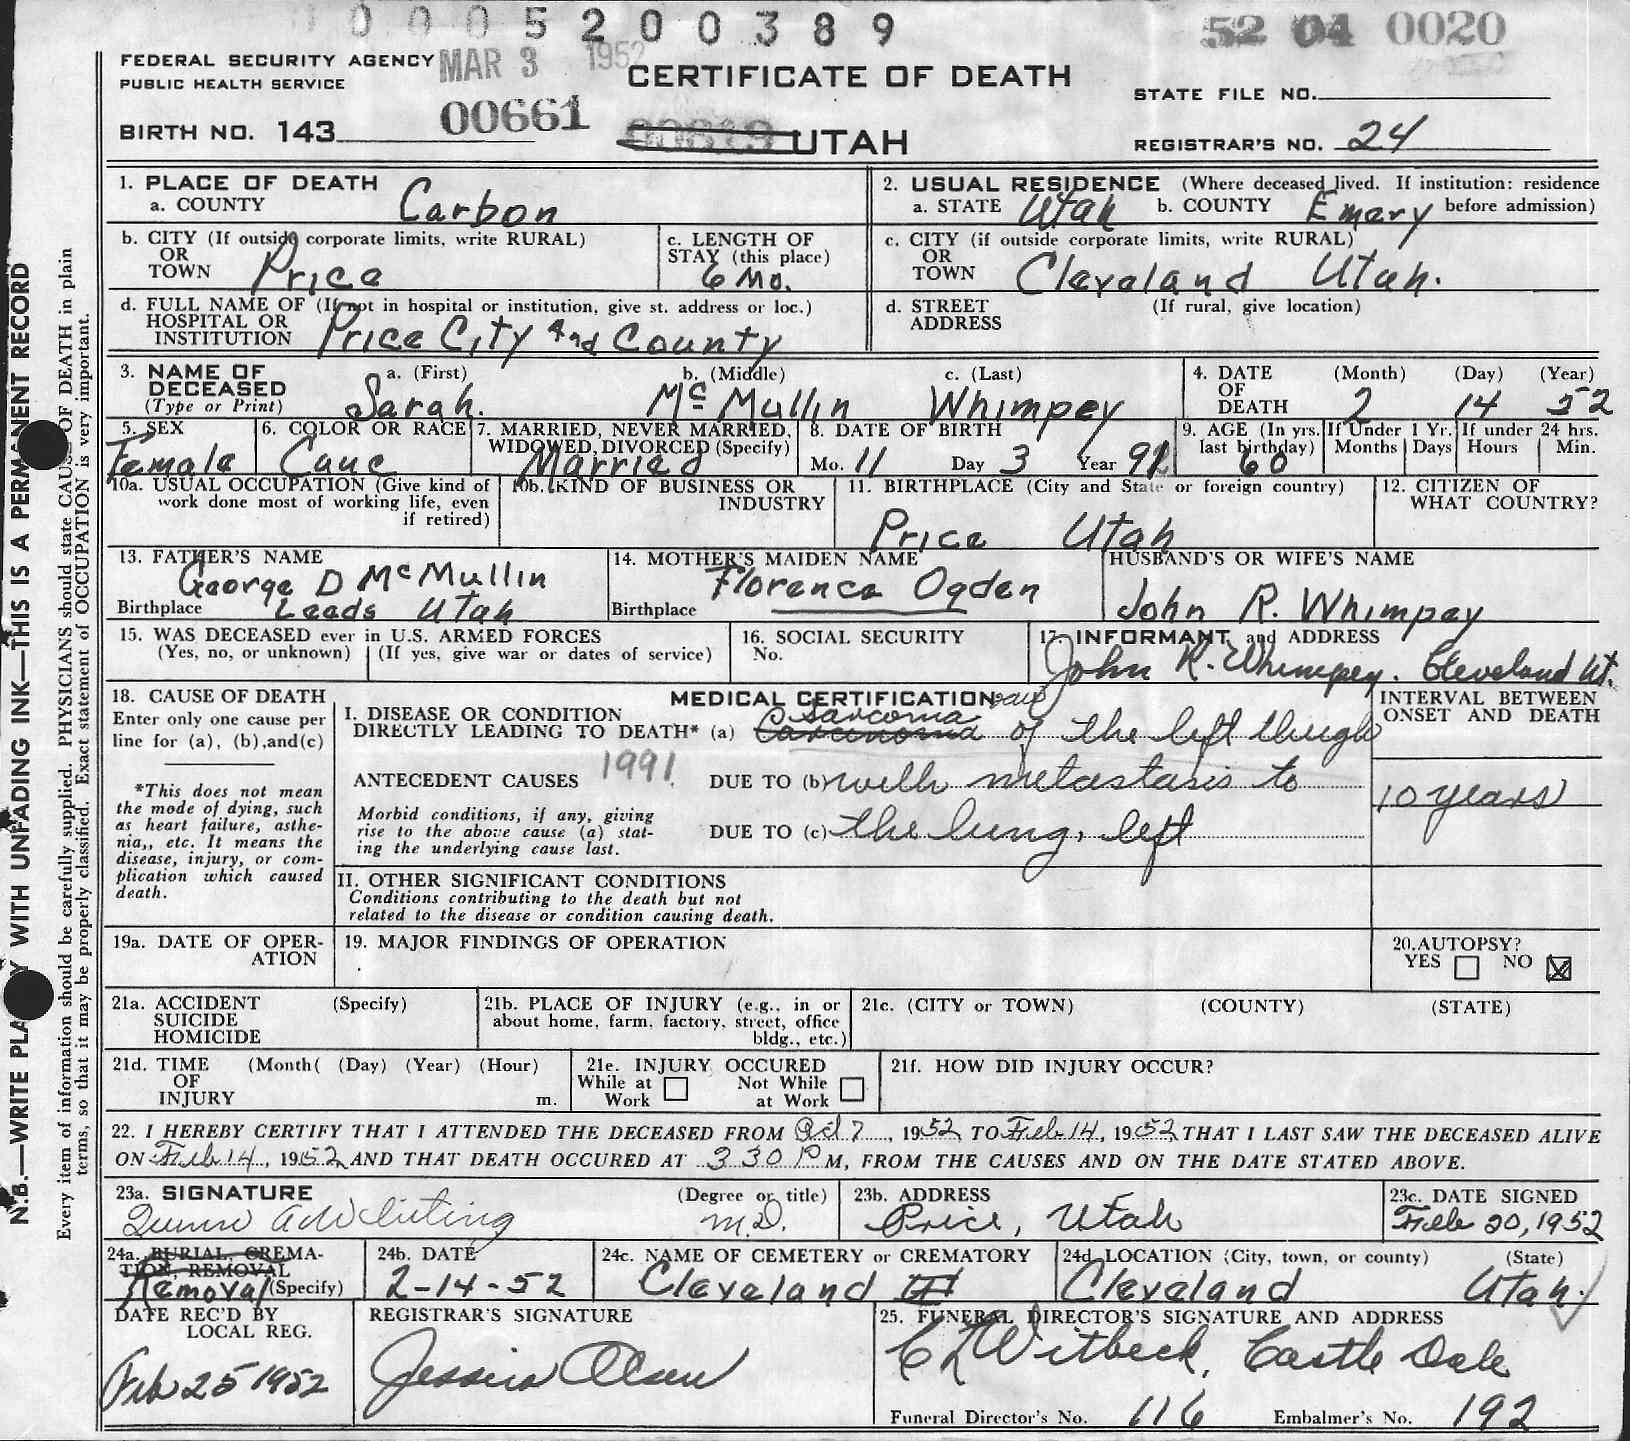 0005200389
52 04 0020
FEDERAL SECURITY AGENCY
PUBLIC HEALTH SERVICE
MAR 3 1952
CERTIFICATE OF DEATH
STATE FILE NO.
BIRTH NO. 143
00661
UTAH
REGISTRAR'S NO. 24
1. PLACE OF DEATH
a. COUNTY Carbon
2. USUAL RESIDENCE (Where deceased lived. If institution: residence before admission)
a. STATE Utah b. COUNTY Emery
b. CITY (If outside corporate limits, write RURAL)
OR
TOWN Price
c. LENGTH OF
STAY (this place)
6 Mo.
c. CITY (if outside corporate limits, write RURAL)
OR
TOWN Cleveland Utah.
d. FULL NAME OF (If not in hospital or institution, give st. address or loc.)
HOSPITAL OR
INSTITUTION Price City And County
d. STREET (If rural, give location)
ADDRESS
3. NAME OF
DECEASED
(Type or Print)
a. (First) b. (Middle) c. (Last)
Sarah. McMullin Whimpey
4. DATE (Month) (Day) (Year)
OF
DEATH 2 14 52
5. SEX
Female
6. COLOR OR RACE
Cauc
7. MARRIED, NEVER MARRIED,
WIDOWED, DIVORCED (Specify)
Married
8. DATE OF BIRTH
Mo. 11 Day 3 Year 91
9. AGE (In yrs. last birthday)
60
If Under 1 Yr.
Months Days
If under 24 hrs.
Hours Min.
10a. USUAL OCCUPATION (Give kind of
work done most of working life, even
if retired)
10b. KIND OF BUSINESS OR
INDUSTRY
11. BIRTHPLACE (City and State or foreign country)
Price Utah
12. CITIZEN OF
WHAT COUNTRY?
13. FATHER'S NAME
George D McMullin
Birthplace Leeds Utah
14. MOTHER'S MAIDEN NAME
Florence Ogden
Birthplace
HUSBAND'S OR WIFE'S NAME
John R. Whimpey
15. WAS DECEASED ever in U.S. ARMED FORCES
(Yes, no, or unknown) (If yes, give war or dates of service)
16. SOCIAL SECURITY
No.
17. INFORMANT and ADDRESS
John R. Whimpey. Cleveland Ut.
18. CAUSE OF DEATH
Enter only one cause per
line for (a), (b), and (c)
*This does not mean
the mode of dying, such
as heart failure, asthe-
nia,, etc. It means the
disease, injury, or com-
plication which caused
death.
MEDICAL CERTIFICATION
I. DISEASE OR CONDITION
DIRECTLY LEADING TO DEATH* (a) Carcinoma sarcoma of the left thigh
ANTECEDENT CAUSES 1991 DUE TO (b) with metastasis to
Morbid conditions, if any, giving
rise to the above cause (a) stat-
ing the underlying cause last.
DUE TO (c) the lung, left
INTERVAL BETWEEN
ONSET AND DEATH
10 years
II. OTHER SIGNIFICANT CONDITIONS
Conditions contributing to the death but not
related to the disease or condition causing death.
19a. DATE OF OPER-
ATION
19. MAJOR FINDINGS OF OPERATION
20. AUTOPSY?
YES NO
21a. ACCIDENT (Specify)
SUICIDE
HOMICIDE
21b. PLACE OF INJURY (e.g., in or
about home, farm, factory, street, office
bldg., etc.)
21c. (CITY or TOWN) (COUNTY) (STATE)
21d. TIME (Month( (Day) (Year) (Hour)
OF
INJURY m.
21e. INJURY OCCURED
While at Work Not While at Work
21f. HOW DID INJURY OCCUR?
22. I HEREBY CERTIFY THAT I ATTENDED THE DECEASED FROM Oct 7, 1952 TO Feb 14, 1952 THAT I LAST SAW THE DECEASED ALIVE
ON Feb 14, 1952 AND THAT DEATH OCCURED AT 3 30 P M, FROM THE CAUSES AND ON THE DATE STATED ABOVE.
23a. SIGNATURE (Degree or title)
Quinn A Whiting M.D.
23b. ADDRESS
Price, Utah
23c. DATE SIGNED
Feb 20, 1952
24a. BURIAL, CREMA-
TION, REMOVAL
Removal (Specify)
24b. DATE
2-14-52
24c. NAME OF CEMETERY or CREMATORY
Cleveland
24d. LOCATION (City, town, or county) (State)
Cleveland Utah.
DATE REC'D BY
LOCAL REG.
Feb 25 1952
REGISTRAR'S SIGNATURE
Jessica Olsen
25. FUNERAL DIRECTOR'S SIGNATURE AND ADDRESS
C L Witbeck, Castle Dale
Funeral Director's No. 116 Embalmer's No. 192
N.B.—WRITE PLAINLY WITH UNFADING INK—THIS IS A PERMANENT RECORD
Every item of information should be carefully supplied. PHYSICIANS should state CAUSE OF DEATH in plain
terms, so that it may be properly classified. Exact statement of OCCUPATION is very important.